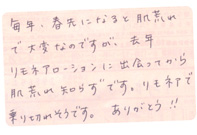 毎年、春先になると肌荒れ
で大変なのですが、去年
リモネアローションに出会ってから
肌荒れ知らずです。リモネアで
乗り切れそうです。ありがとう!!